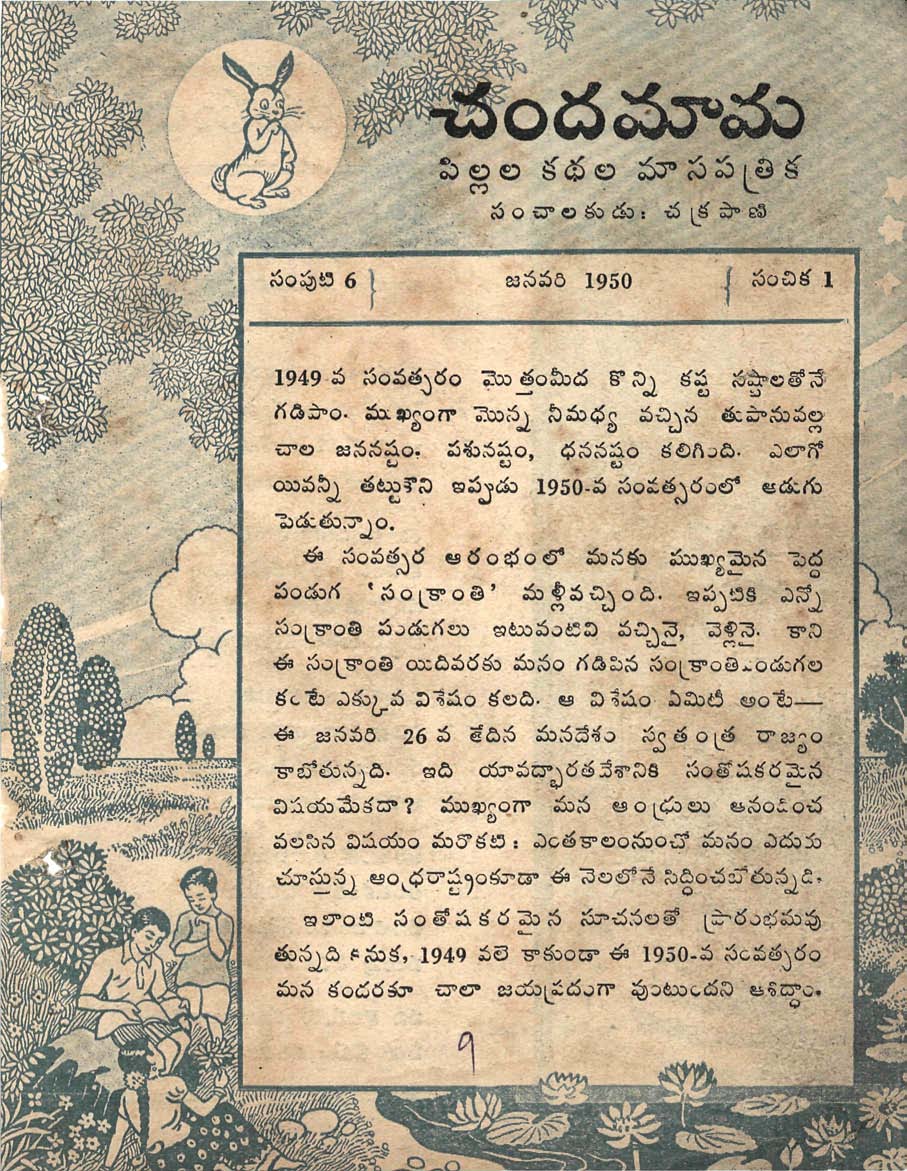 చందమామ
పిల్లల కథల మాసపత్రిక
సంచాలకుడు: చక్రపాణి
సంపుటి 6 } జనవరి 1950 { సంచిక 1
1949-వ సంవత్సరం మొత్తంమీద కొన్ని కష్ట నష్టాలతోనే
గడిపాం. ముఖ్యంగా మొన్న నీమధ్య వచ్చిన తుపానువల్ల
చాల జననష్టం, పశునష్టం, ధననష్టం కలిగింది. ఎలాగో
యివన్నీ తట్టుకొని ఇప్పుడు 1950-వ సంవత్సరంలో అడుగు
పెడుతున్నాం.
ఈ సంవత్సర ఆరంభంలో మనకు ముఖ్యమైన పెద్ద
పండుగ 'సంక్రాంతి' మళ్లీవచ్చింది. ఇప్పటికి ఎన్నో
సంక్రాంతి పండుగలు ఇటువంటివి వచ్చినై, వెళ్లినై. కాని
ఈ సంక్రాంతి యిదివరకు మనం గడిపిన సంక్రాంతిపండుగల
కంటే ఎక్కువ విశేషం కలది. ఆ విశేషం ఏమిటీ అంటే—
ఈ జనవరి 26 వ తేదిన మనదేశం స్వతంత్ర రాజ్యం
కాబోతున్నది. ఇది యావద్భారతదేశానికి సంతోషకరమైన
విషయమేకదా? ముఖ్యంగా మన ఆంధ్రులు ఆనందించ
వలసిన విషయం మరొకటి: ఎంతకాలంనుంచో మనం ఎదురు
చూస్తున్న ఆంధ్రరాష్ట్రంకూడా ఈ నెలలోనే సిద్ధించబోతున్నది.
ఇలాంటి సంతోషకరమైన సూచనలతో ప్రారంభమవు
తున్నది కనుక, 1949 వలె కాకుండా ఈ 1950-వ సంవత్సరం
మన కందరకూ చాలా జయప్రదంగా వుంటుందని ఆశిద్దాం.
9